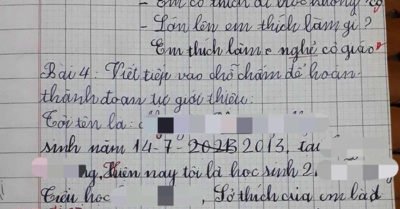 - Em có thích đi học không
- Lớn lên em thích làm gì?
Em thích làm nghề cô giáo
Bài 4: Viết tiếp vào chỗ chấm để hoàn
thành đoạn tự giới thiệu:
Tôi tên là:
sinh năm 14-7- 2013, tại
Hiện nay tôi là học sinh 2
Tiểu học , Sở thích của em là